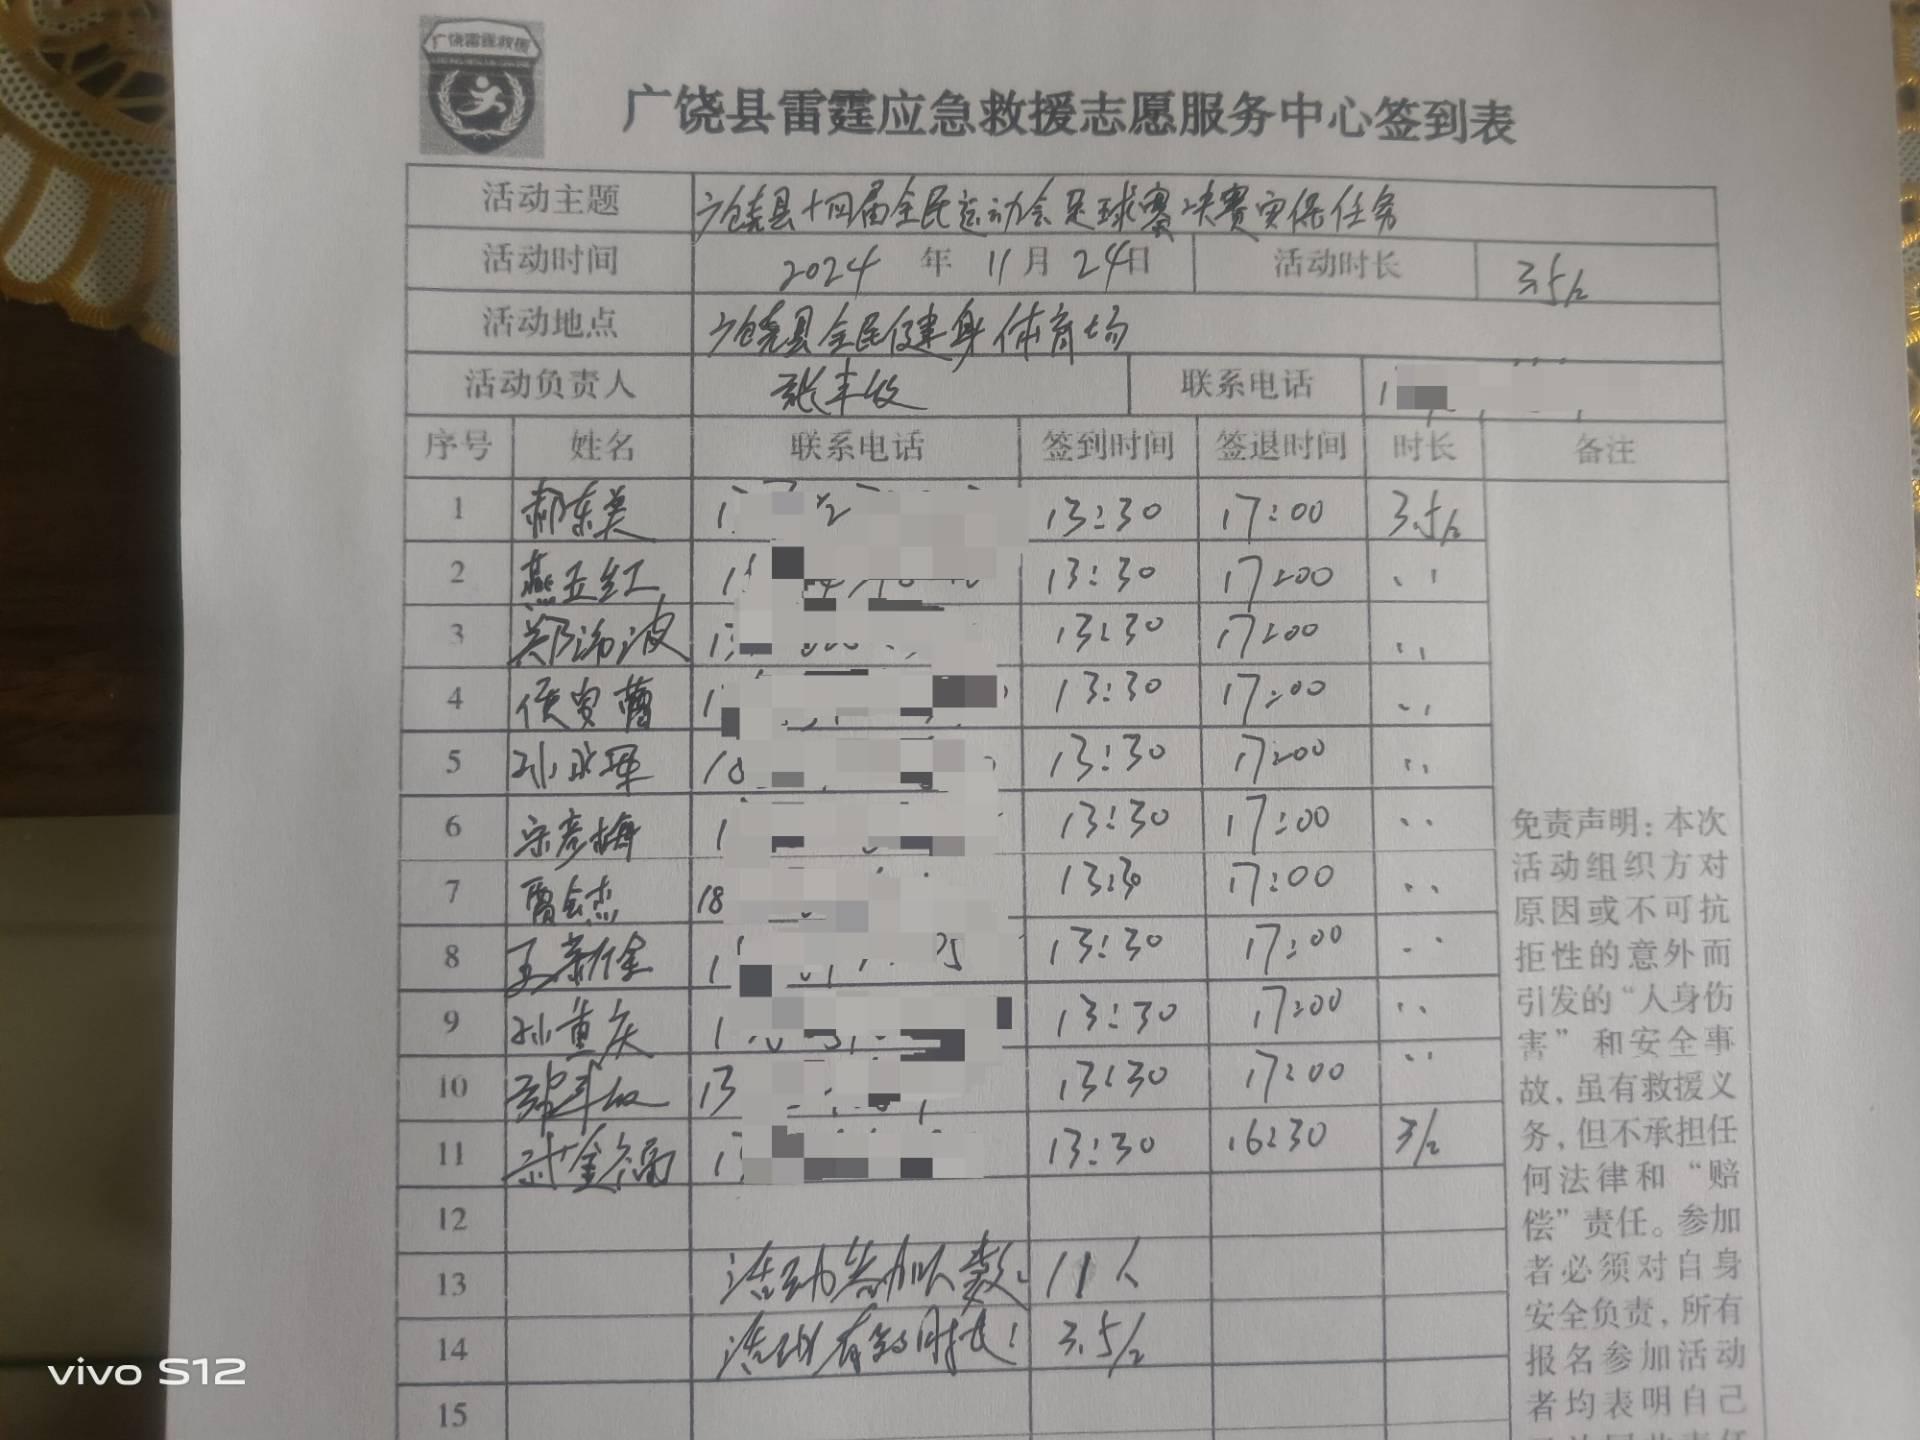 广饶雷霆救援
广饶县雷霆应急救援志愿服务中心签到表
活动主题 广饶县十四届全民运动会足球赛决赛安保任务
活动时间 2024 年 11 月 24 日 活动时长 3.5/h
活动地点 广饶县全民健身体育场
活动负责人 张丰收 联系电话 1
序号 姓名 联系电话 签到时间 签退时间 时长 备注
1 郝东美 1 13:30 17:00 3.5/h
2 燕玉红 1 13:30 17:00 〃
3 郑海波 13 13:30 17:00 〃
4 侯 1 13:30 17:00 〃
5 孙 18 13:30 17:00 〃
6 宋彦梅 1 13:30 17:00 〃
7 贾会杰 18 13:30 17:00 〃
8 王新 1 5 13:30 17:00 〃
9 孙重庆 1 13:30 17:00 〃
10 张丰收 13 13:30 17:00 〃
11 金福 1 13:30 16:30 3/h
12
13 活动参加人数: 11人
14 活动有效时长: 3.5/h
15
免责声明：本次
活动组织方对
原因或不可抗
拒性的意外而
引发的“人身伤
害”和安全事
故，虽有救援义
务，但不承担任
何法律和“赔
偿”责任。参加
者必须对自身
安全负责，所有
报名参加活动
者均表明自己
vivo S12